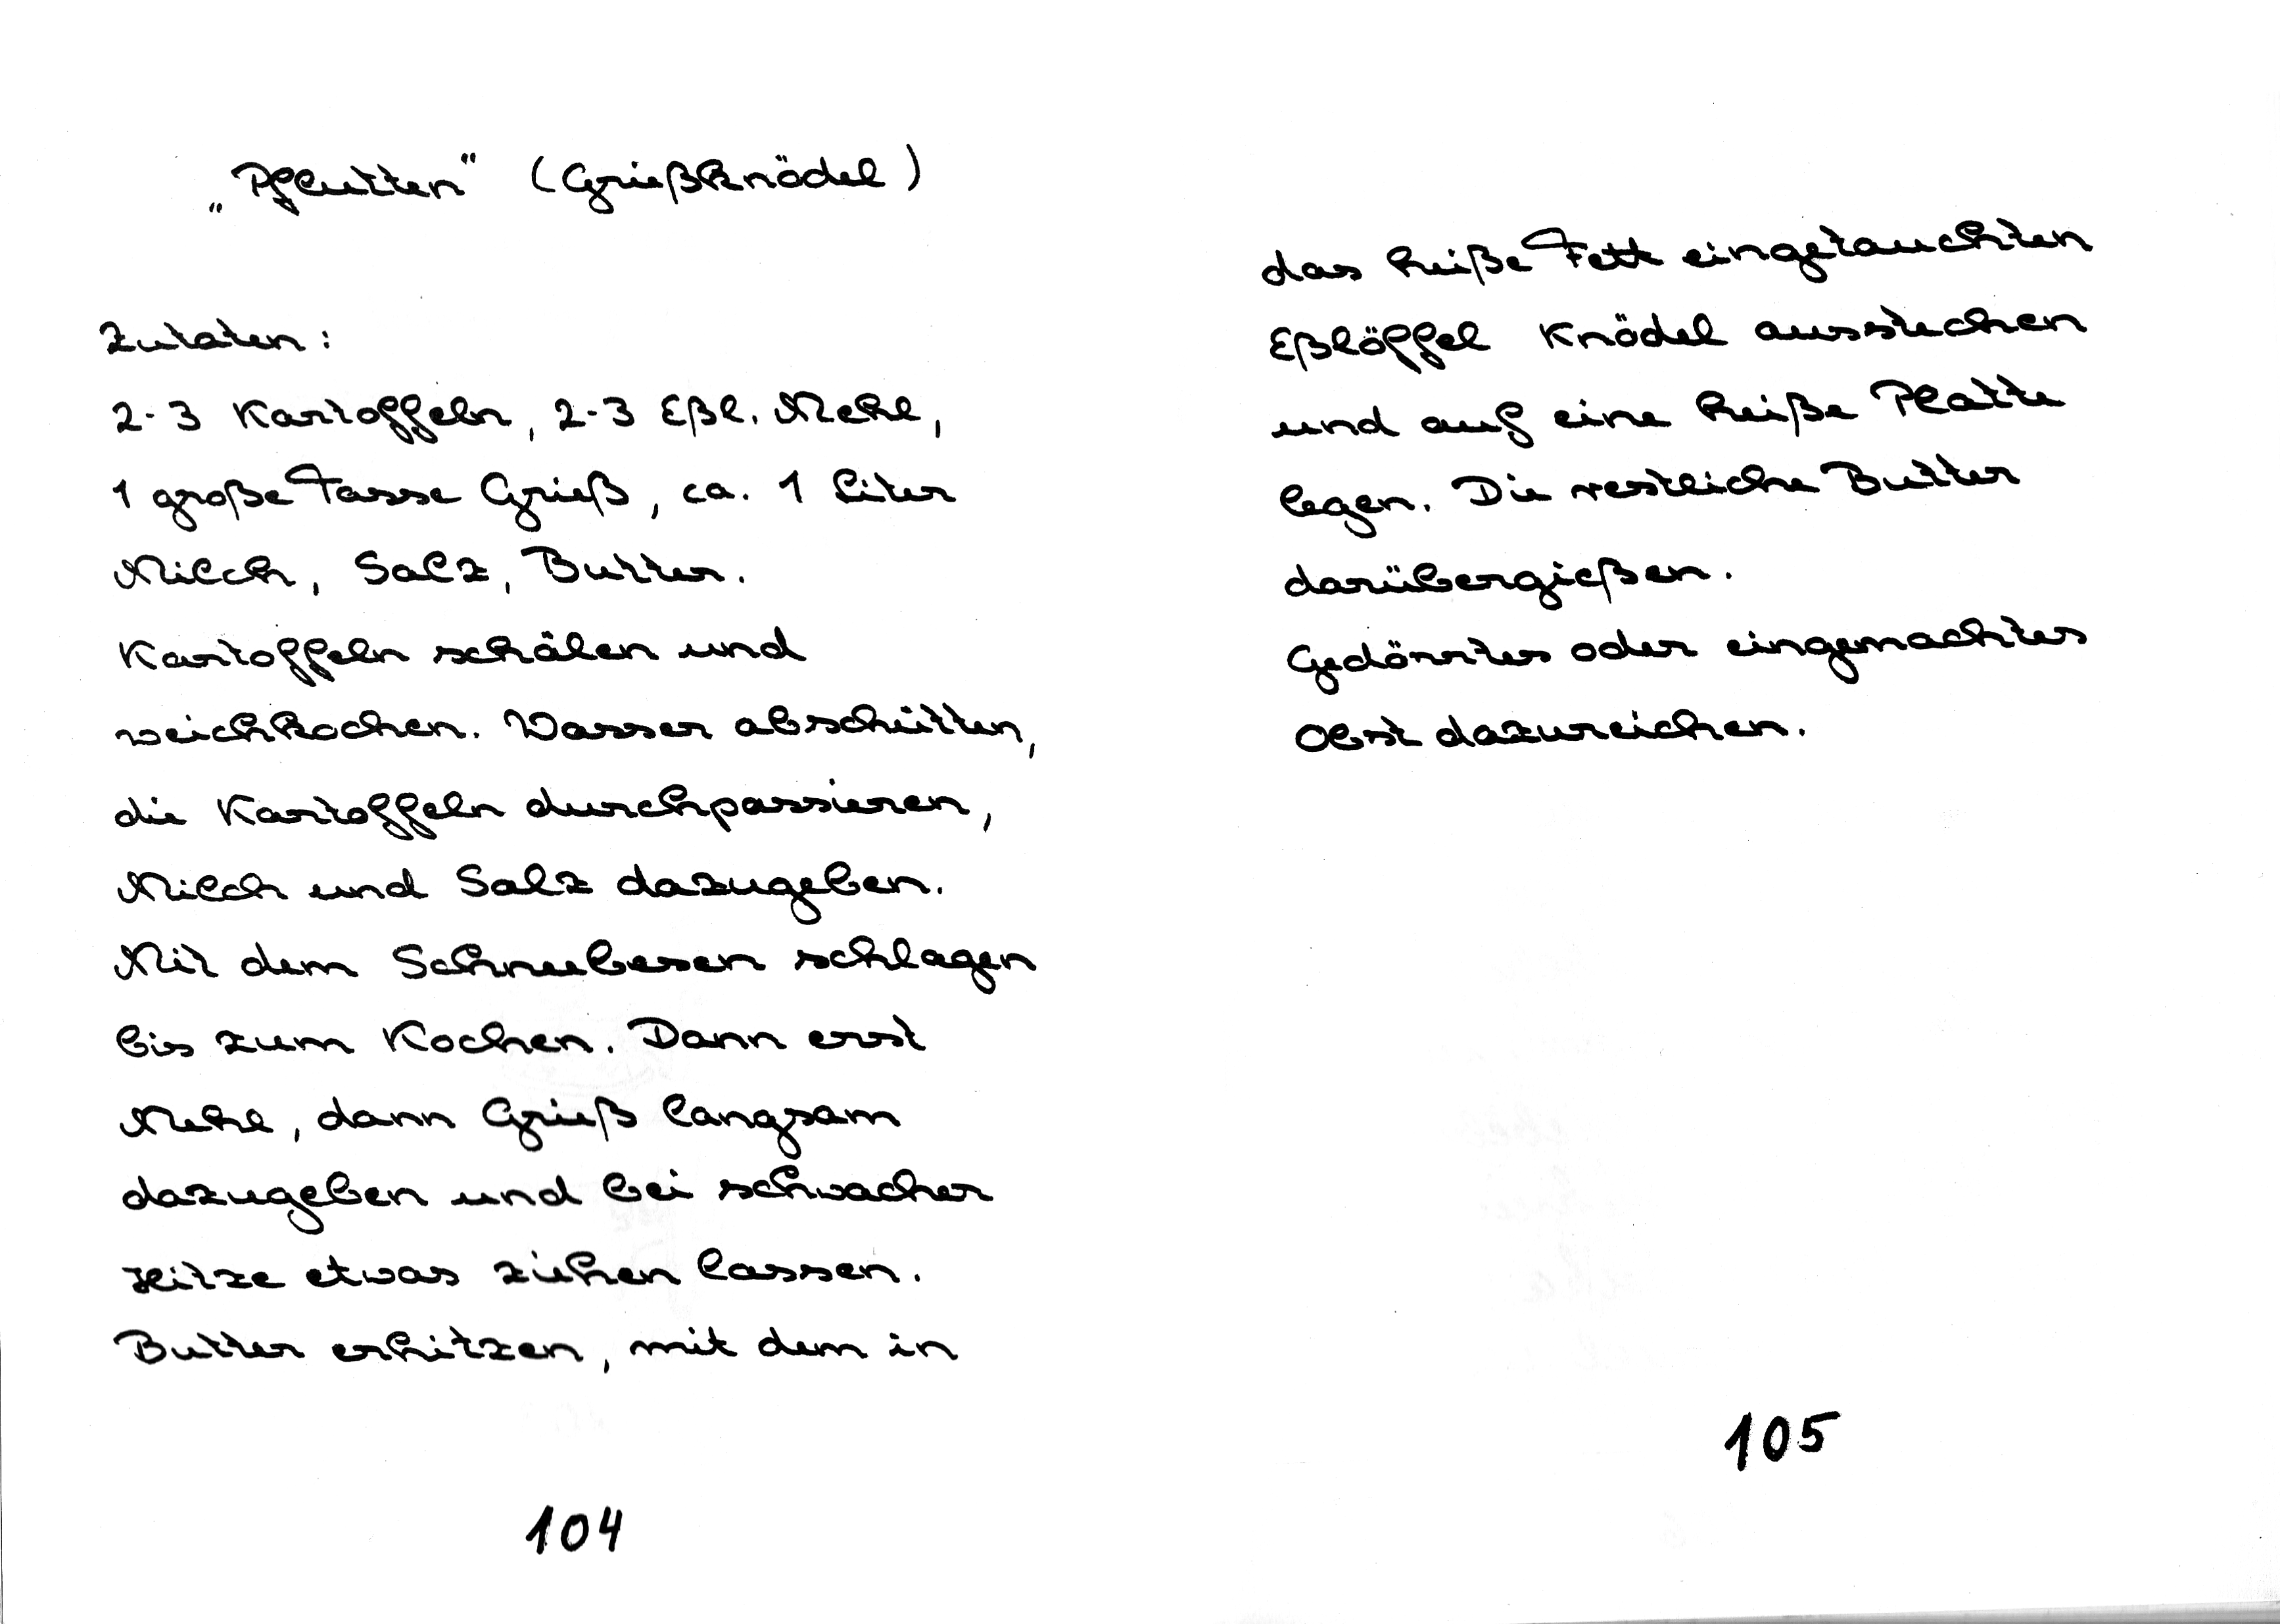 „Pflutten" (Grießknödel)
Zutaten:
2-3 Kartoffeln, 2-3 Eßl. Mehl,
1 große Tasse Grieß, ca. 1 Liter
Milch, Salz, Butter.
Kartoffeln schälen und
weichkochen. Wasser abschütten,
die Kartoffeln durchpassieren,
Milch und Salz dazugeben.
Mit dem Schneebesen schlagen
bis zum Kochen. Dann erst
Mehl, dann Grieß langsam
dazugeben und bei schwacher
Hitze etwas ziehen lassen.
Butter erhitzen, mit dem in
104
das heiße Fett eingetauchten
Eßlöffel Knödel ausstechen
und auf eine heiße Platte
legen. Die restliche Butter
darübergießen.
Gedörrtes oder eingemachtes
Obst dazureichen.
105